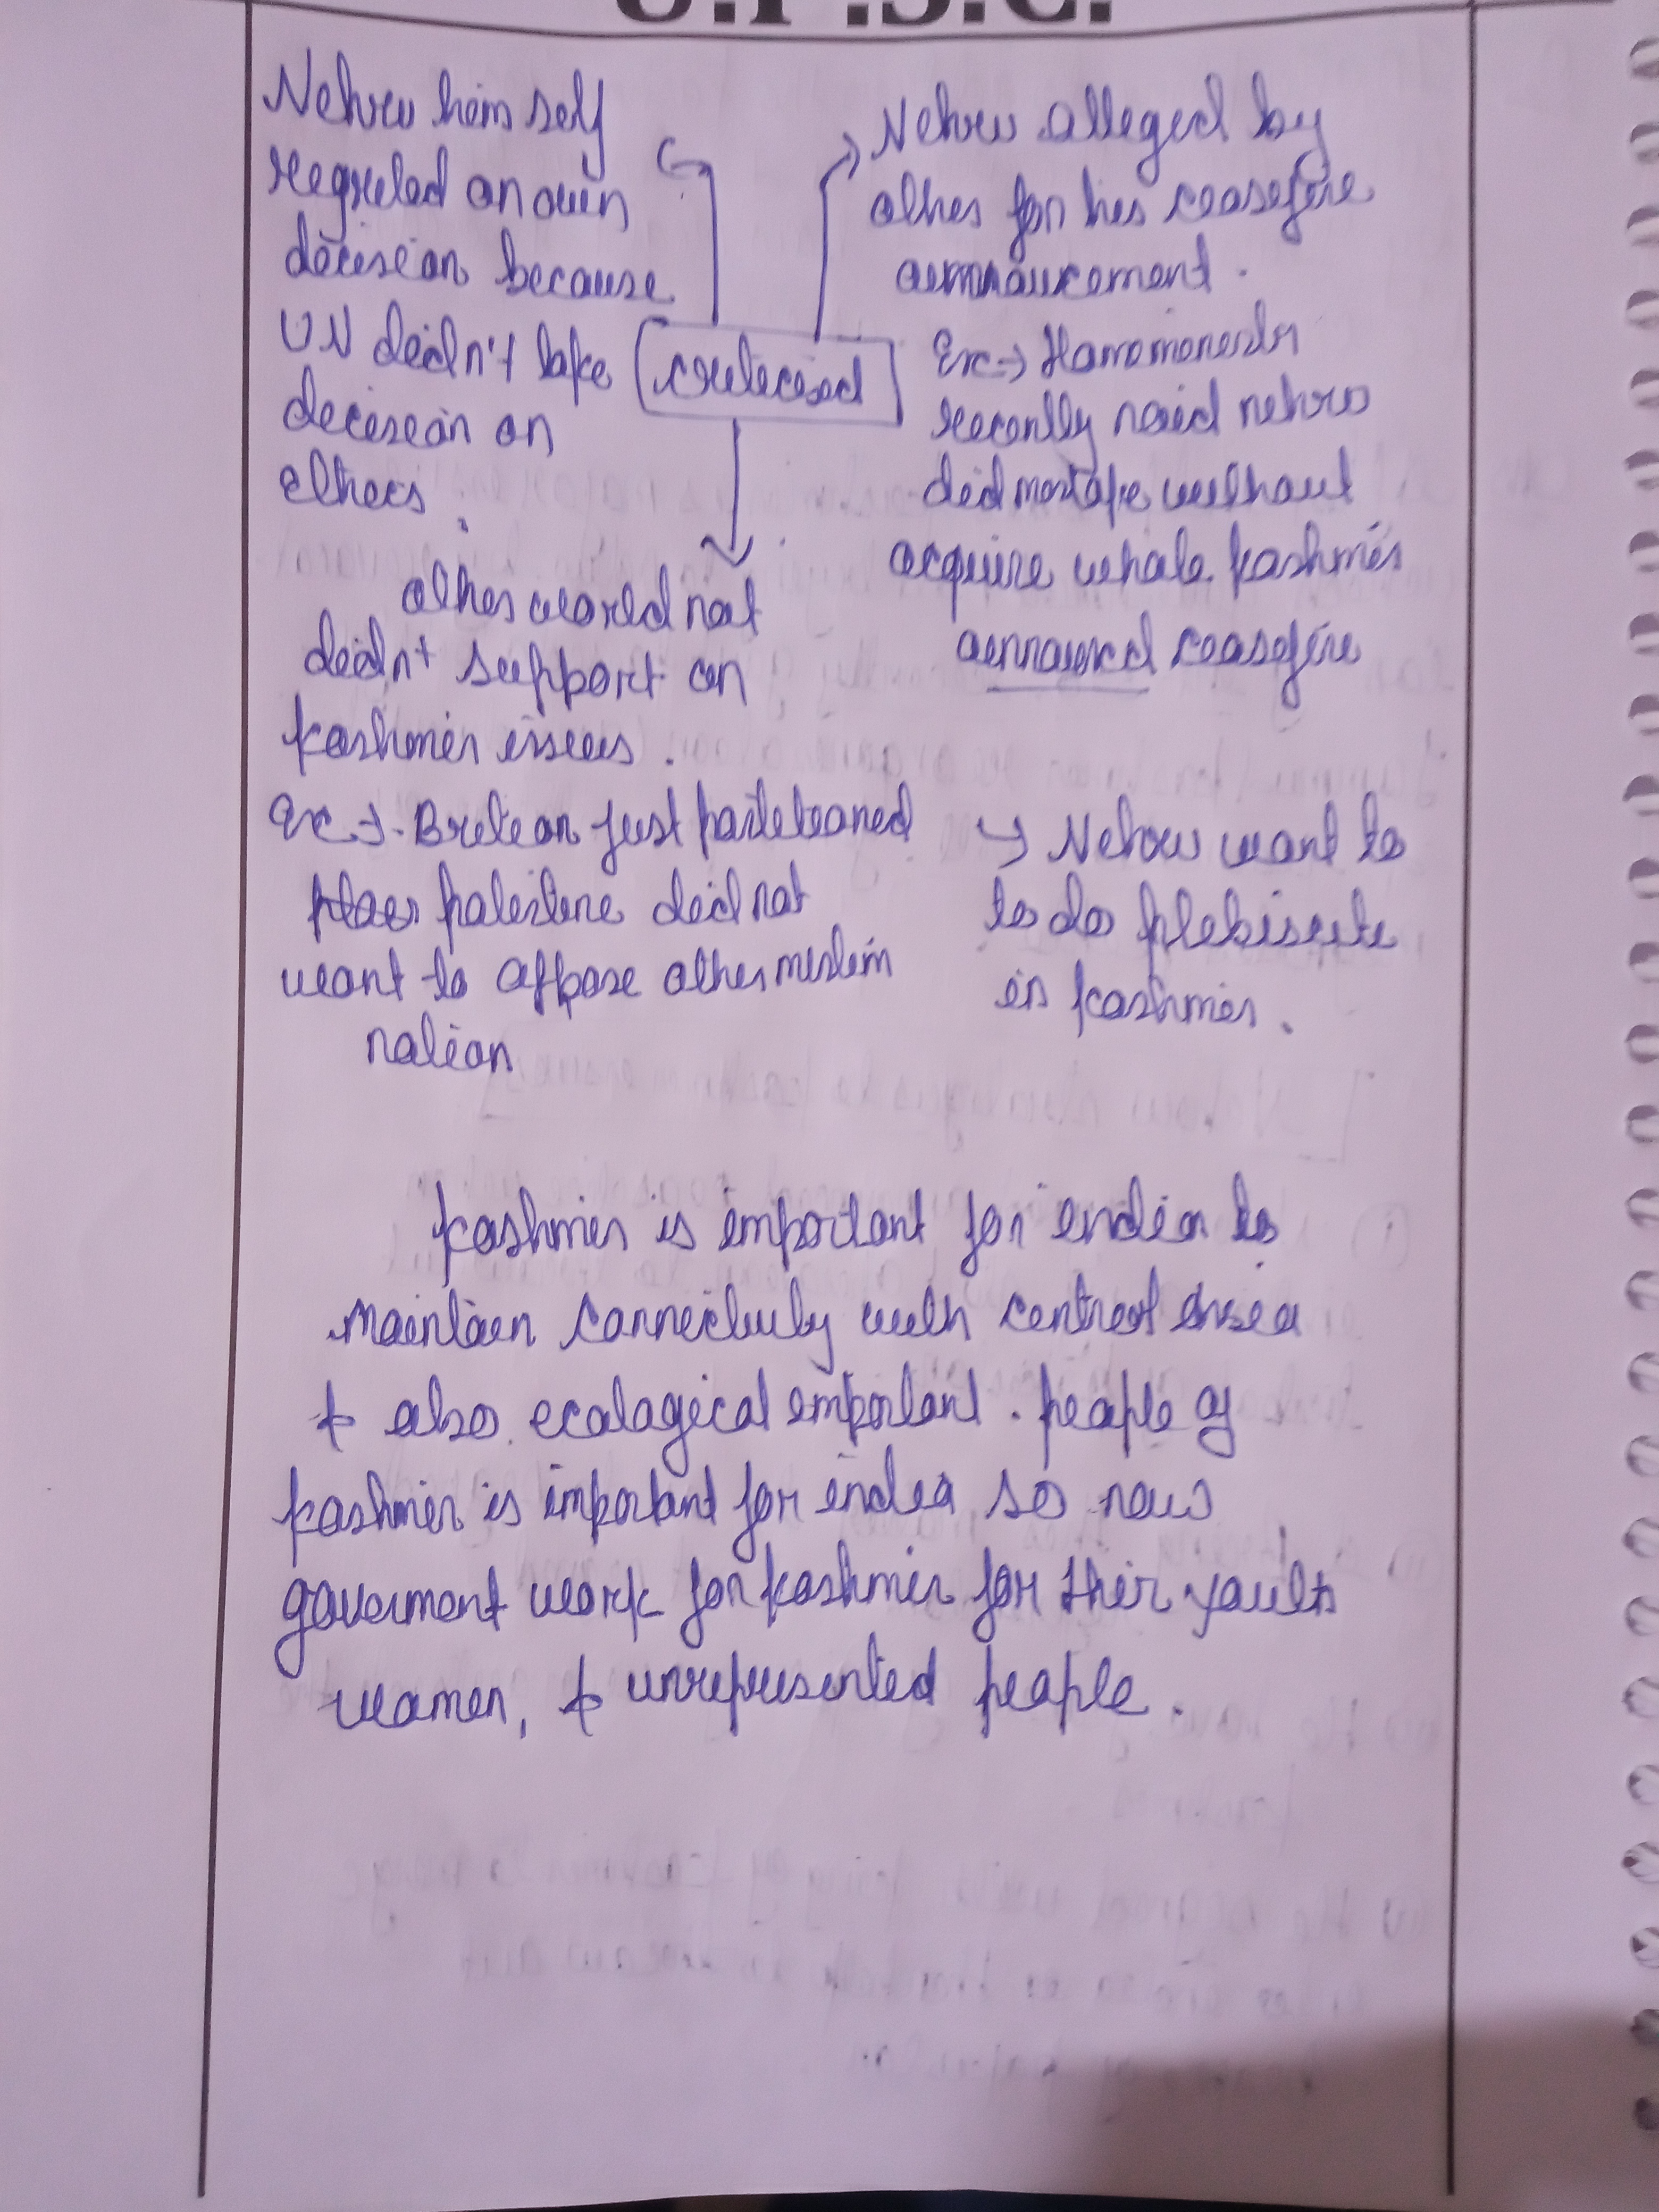 U.P.S.C.
Nehru him self
regreted on own
decision because
UN didn't take
decision on
others.
criticised
Nehru alleged by
other for his ceasefire
announcement.
Ex → Homeminister
recently said nehru
did mistake without
acquire whole kashmir
announced ceasefire
other world not
didnt support on
kashmir issues.
Ex →. Britean just partitioned
palestine did not
want to oppose other muslim
nation
→ Nehru want to
to do plebiscite
in kashmir.
kashmir is important for india to
maintain connectivity with central asia
& also ecological important. people of
kashmir is important for india so now
goverment work for kashmir for their youth
women, & unrepresented people.